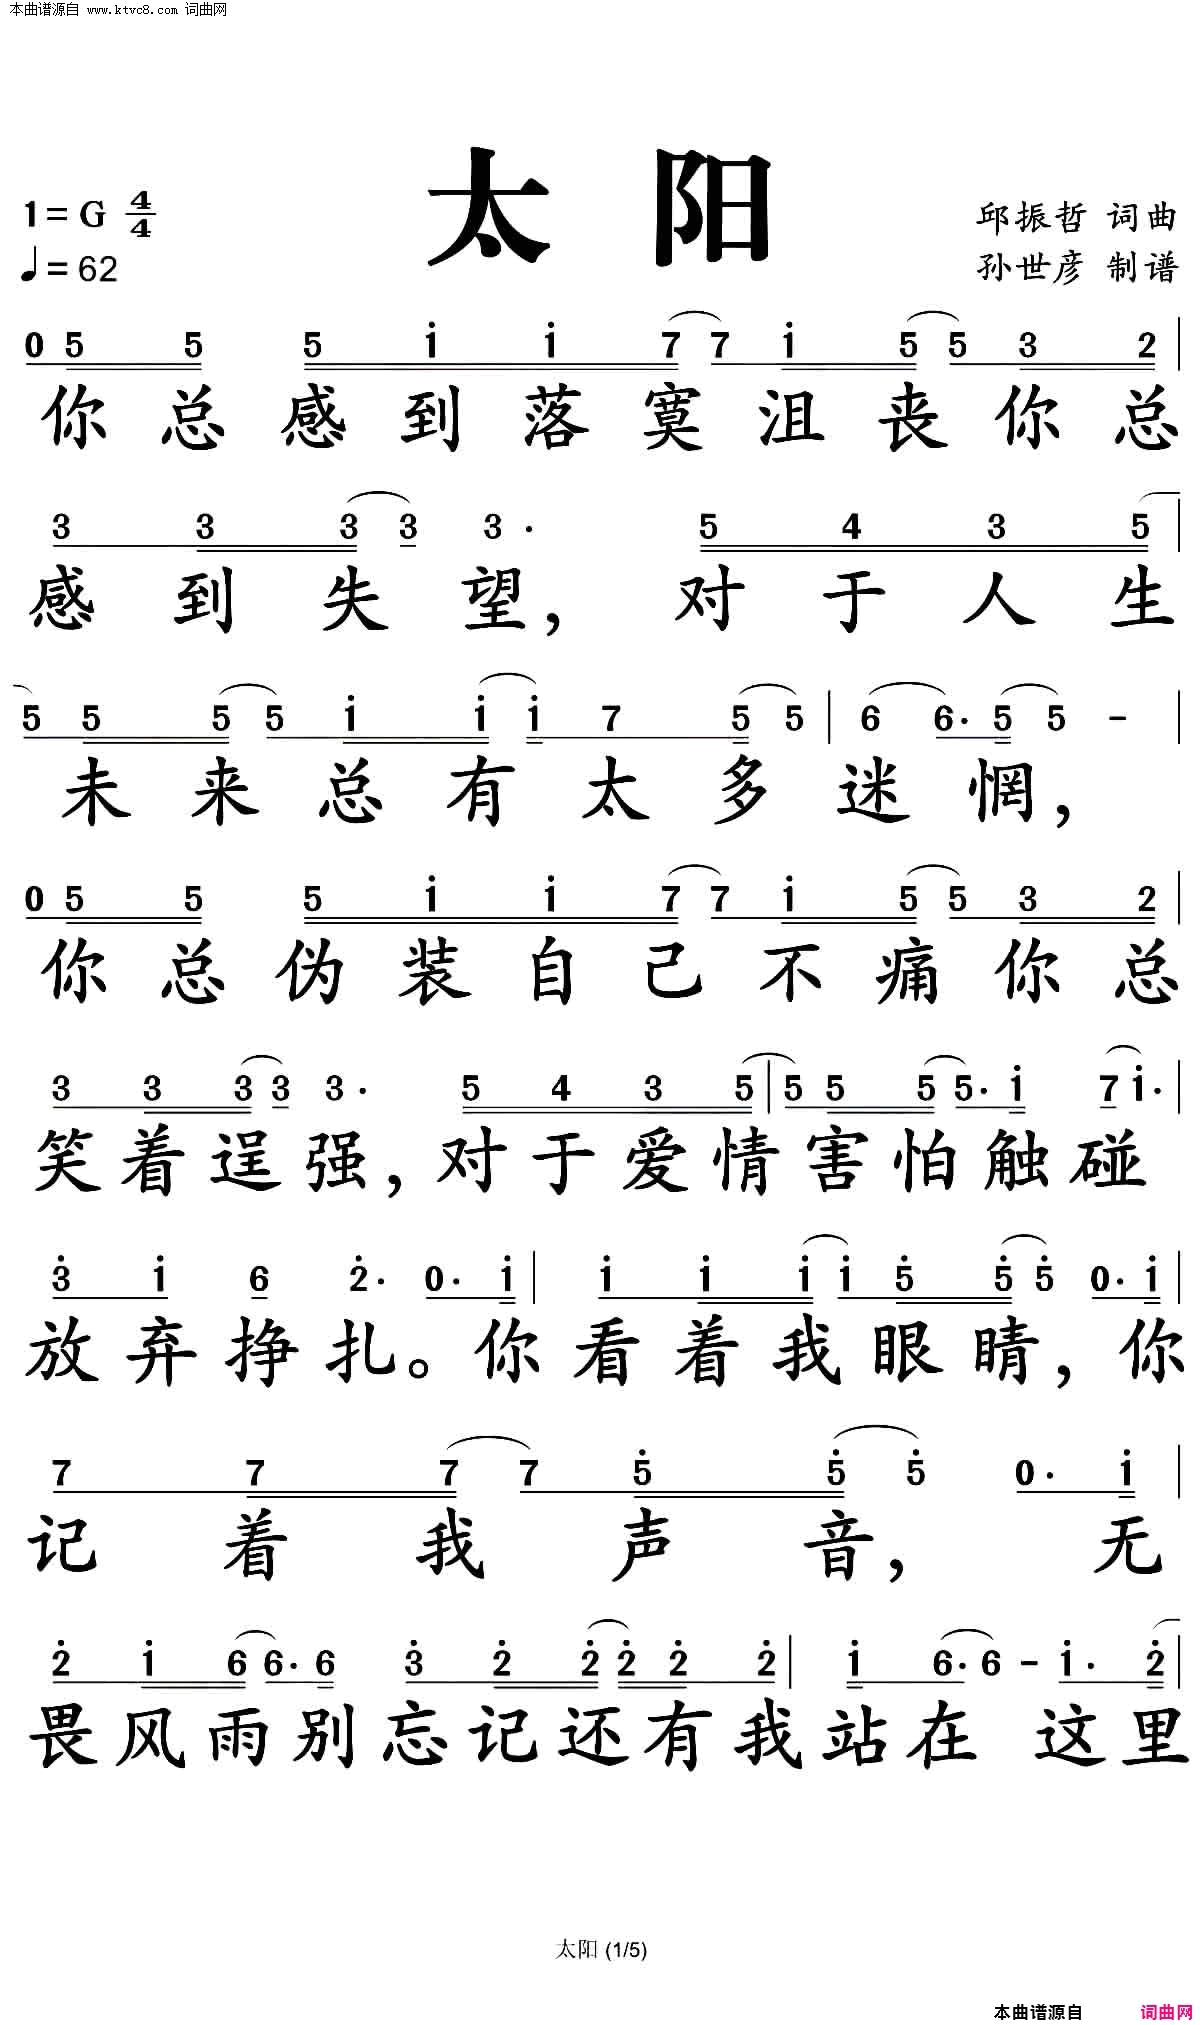 本曲谱源自 www.ktvc8.com 词曲网
太 阳
1=G 4/4
♩=62
邱振哲 词曲
孙世彦 制谱
0 5 5 5 i i 7 7 i 5 5 3 2 |
你总感到落寞沮丧你总
3 3 3 3 3· 5 4 3 5 |
感到失望，对于人生
5 5 5 5 i i i 7 5 5 | 6 6· 5 5 - |
未来总有太多迷惘，
0 5 5 5 i i 7 7 i 5 5 3 2 |
你总伪装自己不痛你总
3 3 3 3 3· 5 4 3 5 | 5 5 5 5· i 7 i· |
笑着逞强，对于爱情害怕触碰
3̇ i 6 2̇· 0· i | i i i i 5̇ 5̇ 5̇ 0· i |
放弃挣扎。你看着我眼睛，你
7 7 7 7 5̇ 5̇ 5̇ 0· i |
记着我声音，无
2̇ i 6 6· 6 3̇ 2̇ 2̇ 2̇ 2̇ 2̇ | i 6· 6 - i· 2̇ |
畏风雨别忘记还有我站在 这里
太阳 (1/5)
本曲谱源自 词曲网